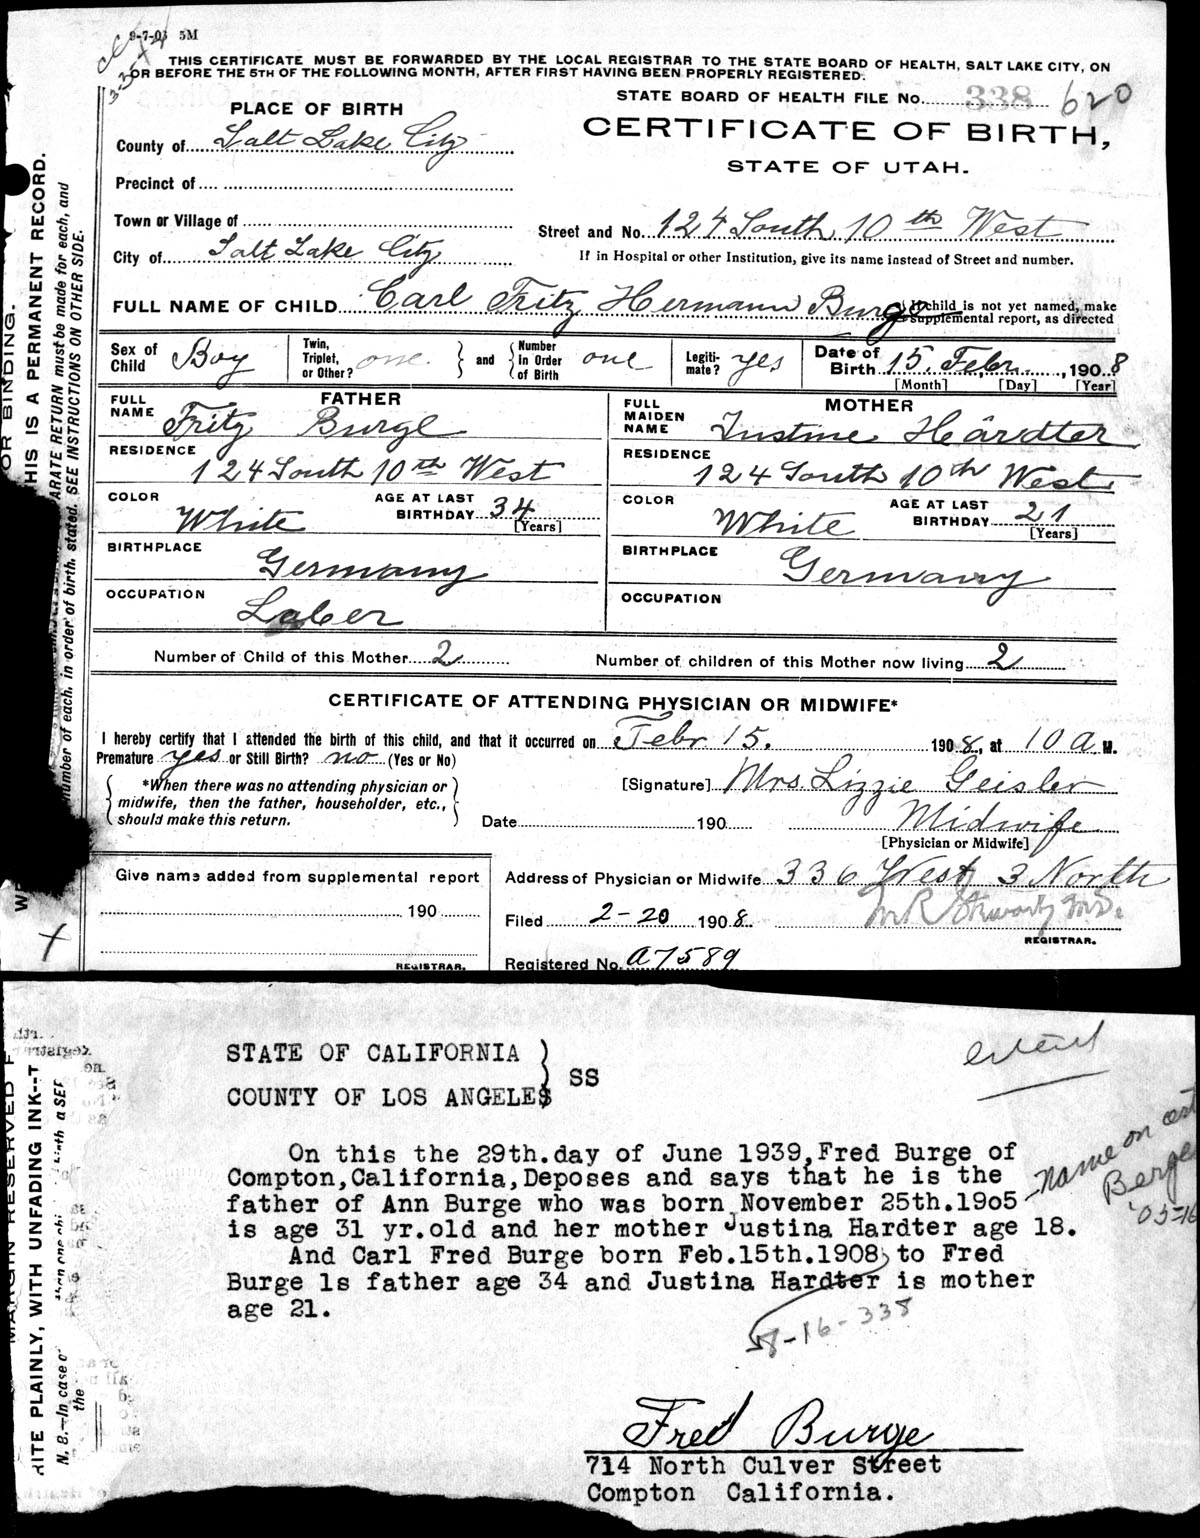 9-7-03 5M
THIS CERTIFICATE MUST BE FORWARDED BY THE LOCAL REGISTRAR TO THE STATE BOARD OF HEALTH, SALT LAKE CITY, ON
OR BEFORE THE 5TH OF THE FOLLOWING MONTH, AFTER FIRST HAVING BEEN PROPERLY REGISTERED.
STATE BOARD OF HEALTH FILE No. 338 620
PLACE OF BIRTH
CERTIFICATE OF BIRTH,
STATE OF UTAH.
County of Salt Lake City
Precinct of
Town or Village of
Street and No. 124 South 10th West
City of Salt Lake City
If in Hospital or other Institution, give its name instead of Street and number.
FULL NAME OF CHILD Carl Fritz Hermann Burge
If child is not yet named, make
supplemental report, as directed
Sex of Child Boy
Twin, Triplet, or Other? one
and
Number in Order of Birth one
Legiti-mate? yes
Date of Birth 15. Febr. , 1908
[Month] [Day] [Year]
FATHER
FULL NAME Fritz Burge
RESIDENCE
124 South 10th West
COLOR White
AGE AT LAST BIRTHDAY 34
[Years]
BIRTHPLACE
Germany
OCCUPATION
Laber
MOTHER
FULL MAIDEN NAME Justine Härdter
RESIDENCE
124 South 10th West
COLOR White
AGE AT LAST BIRTHDAY 21
[Years]
BIRTHPLACE
Germany
OCCUPATION
Number of Child of this Mother 2
Number of children of this Mother now living 2
CERTIFICATE OF ATTENDING PHYSICIAN OR MIDWIFE*
I hereby certify that I attended the birth of this child, and that it occurred on Febr 15. 1908, at 10 A M.
Premature yes or Still Birth? no (Yes or No)
*When there was no attending physician or
midwife, then the father, householder, etc.,
should make this return.
[Signature] Mrs. Lizzie Geisler
Date 190
Midwife
[Physician or Midwife]
Give name added from supplemental report
190
REGISTRAR.
Address of Physician or Midwife 336 West 3 North
Filed 2-20 1908
REGISTRAR.
Registered No. A7589
OR BINDING.
THIS IS A PERMANENT RECORD.
ARATE RETURN must be made for each, and
number of each, in order of birth, stated. SEE INSTRUCTIONS ON OTHER SIDE.
STATE OF CALIFORNIA )
SS
COUNTY OF LOS ANGELES
On this the 29th.day of June 1939,Fred Burge of
Compton,California,Deposes and says that he is the
father of Ann Burge who was born November 25th.1905
is age 31 yr.old and her mother Justina Hardter age 18.
And Carl Fred Burge born Feb.15th.1908 to Fred
Burge ls father age 34 and Justina Hardter is mother
age 21.
Name on cert
Berge
'05-16
8-16-338
Fred Burge
714 North Culver Street
Compton California.
MARGIN RESERVED F
RITE PLAINLY, WITH UNFADING INK--T
N. B.—In case o
the